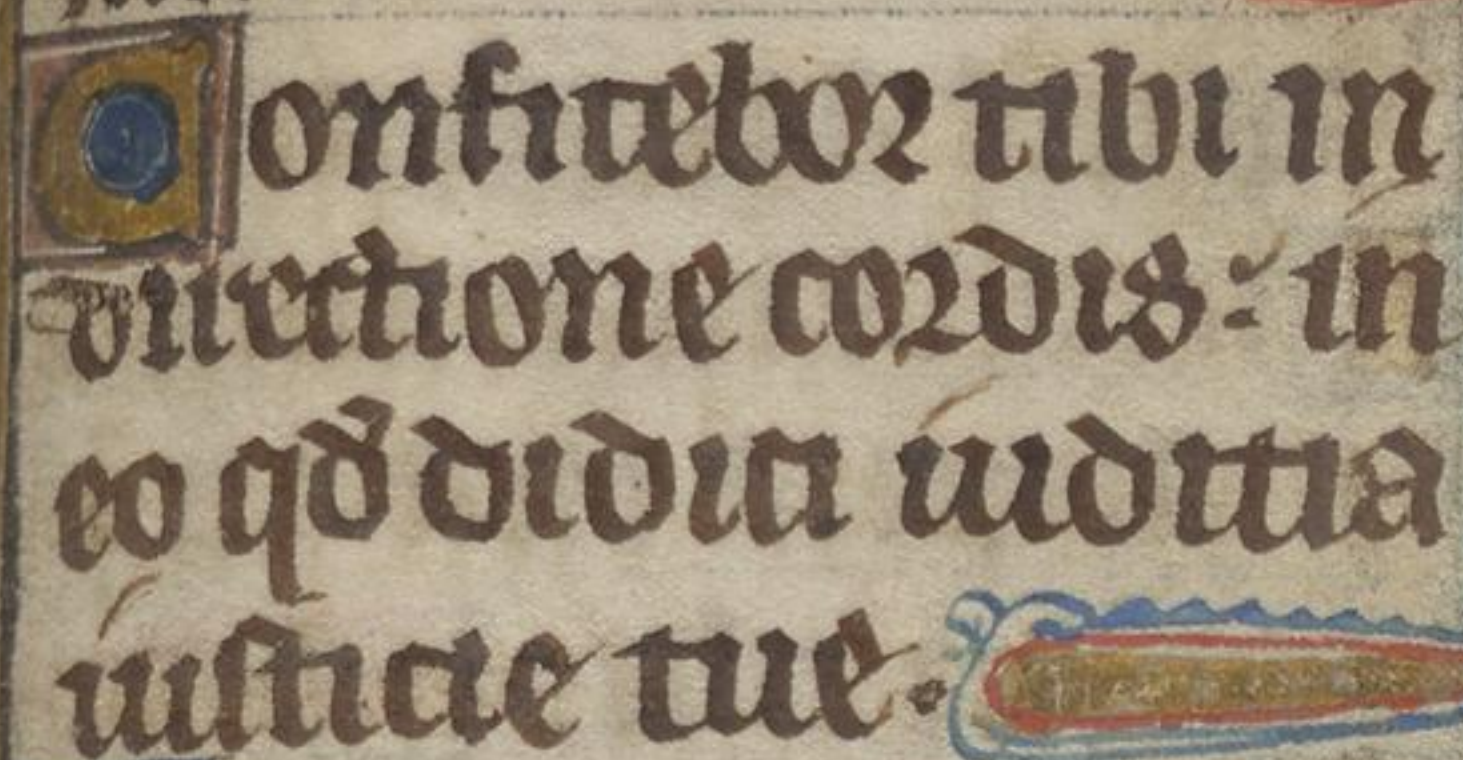 Confitebor tibi in
directione cordis : in
eo qđ didici iudicia
iusticie tue .